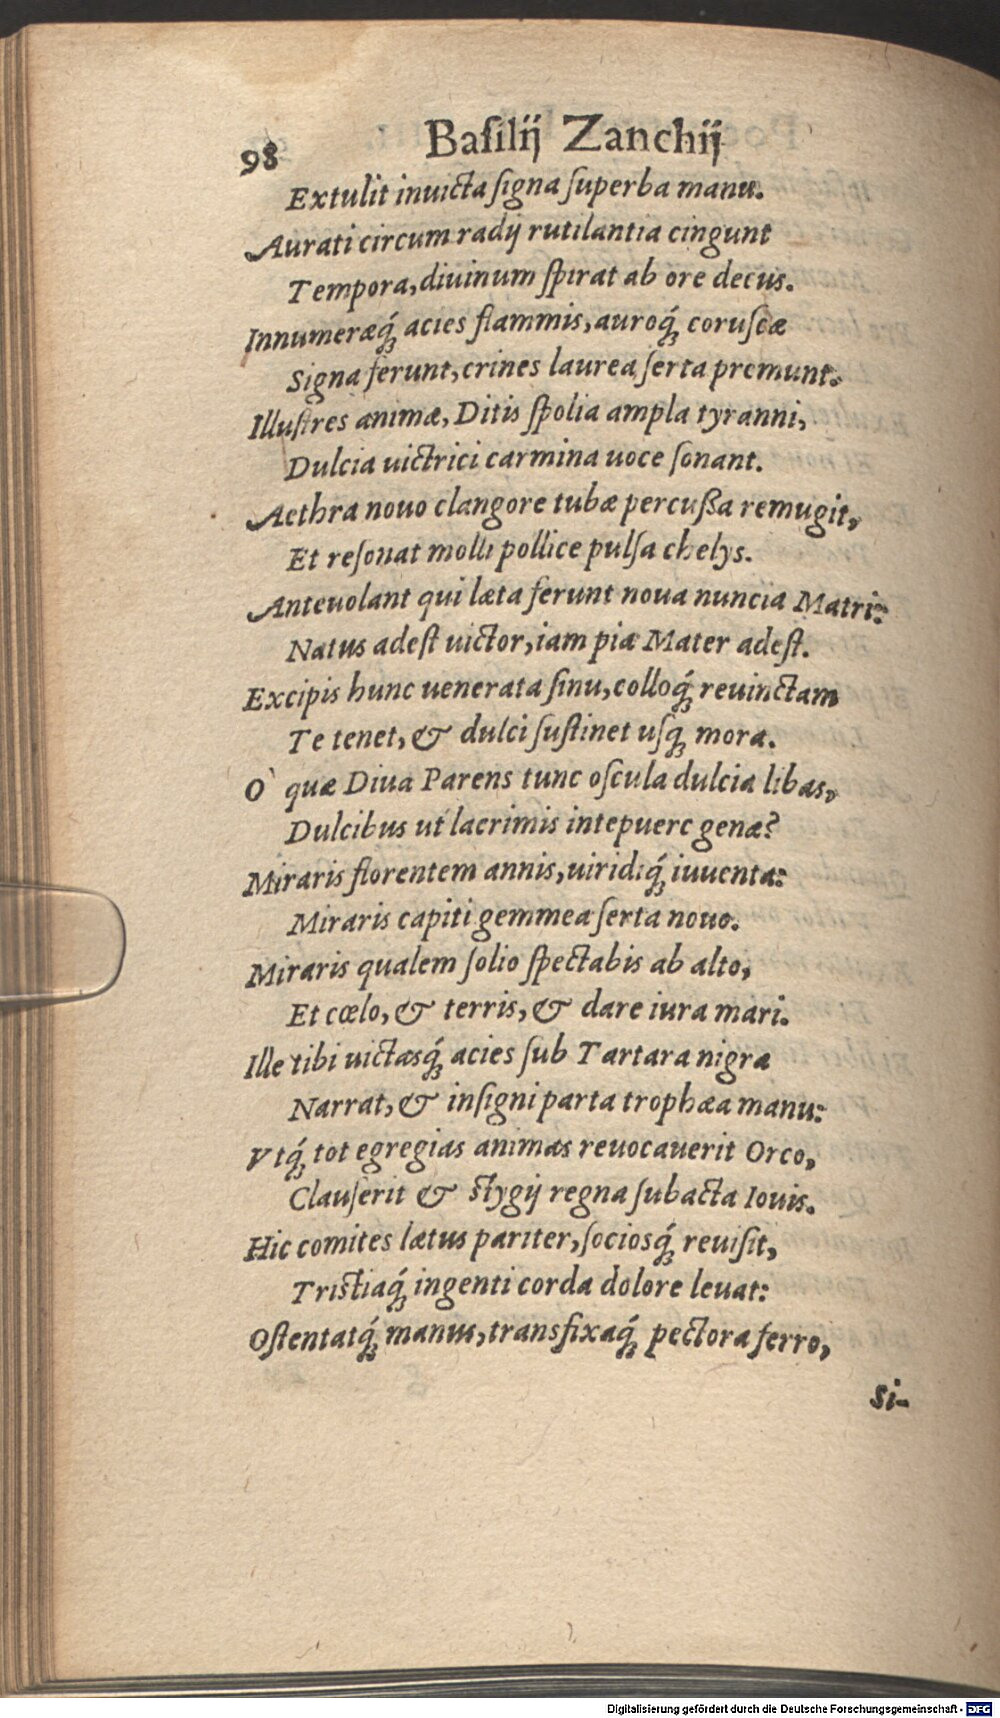 98 Baſilij Zanchij
Extulit inuicta ſigna ſuperba manu.
Aurati circum radij rutilantia cingunt
Tempora, diuinum ſpirat ab ore decus.
Innumeræq́; acies flammis, auroq́; coruſcæ
Signa ferunt, crines laurea ſerta premunt.
Illuſtres animæ, Ditis ſpolia ampla tyranni,
Dulcia uictrici carmina uoce ſonant.
Aethra nouo clangore tubæ percuſſa remugit,
Et reſonat molli pollice pulſa chelys.
Anteuolant qui læta ferunt noua nuncia Matri:
Natus adeſt uictor, iam pia Mater adeſt.
Excipis hunc uenerata ſinu, colloq́; reuinctam
Te tenet, & dulci ſuſtinet uſq; mora.
O` quæ Diua Parens tunc oſcula dulcia libas,
Dulcibus ut lacrimis intepuere genæ?
Miraris florentem annis, uiridiq́; iuuenta:
Miraris capiti gemmea ſerta nouo.
Miraris qualem ſolio ſpectabis ab alto,
Et cœlo, & terris, & dare iura mari.
Ille tibi uictasq́; acies ſub Tartara nigra
Narrat, & inſigni parta trophæa manu:
Vtq́; tot egregias animas reuocauerit Orco,
Clauſerit & ſtygij regna ſubacta Iouis.
Hic comites lætus pariter, ſociosq́; reuiſit,
Triſtiaq́; ingenti corda dolore leuat:
Oſtentatq́; manus, transfixaq́; pectora ferro,
Si-
Digitalisierung gefördert durch die Deutsche Forschungsgemeinschaft - DFG